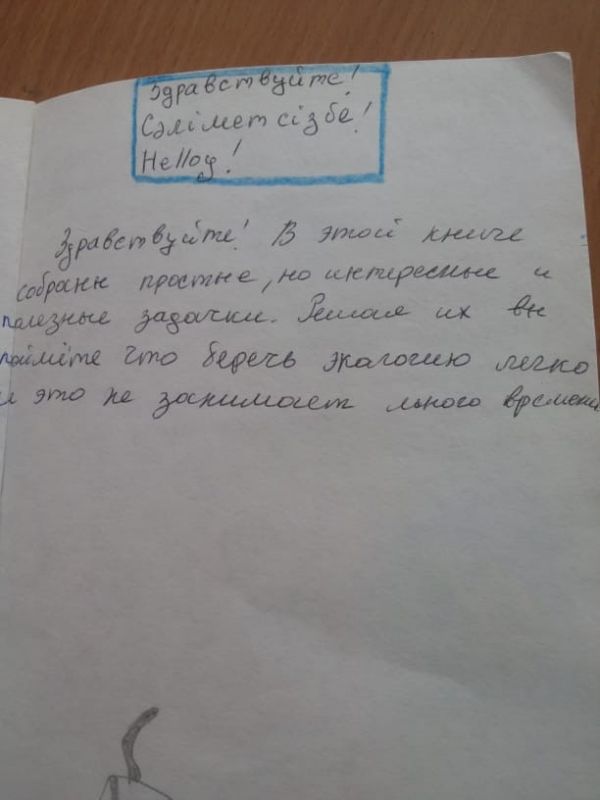 Здравствуйте!
Сәлімет сізбе!
Helloy!
Здравствуйте! В этой книге
собранн простне, но интересные и
полезные задачки. Решая их вн
поймёте что беречь экалогию легко
и это не занимает много времени